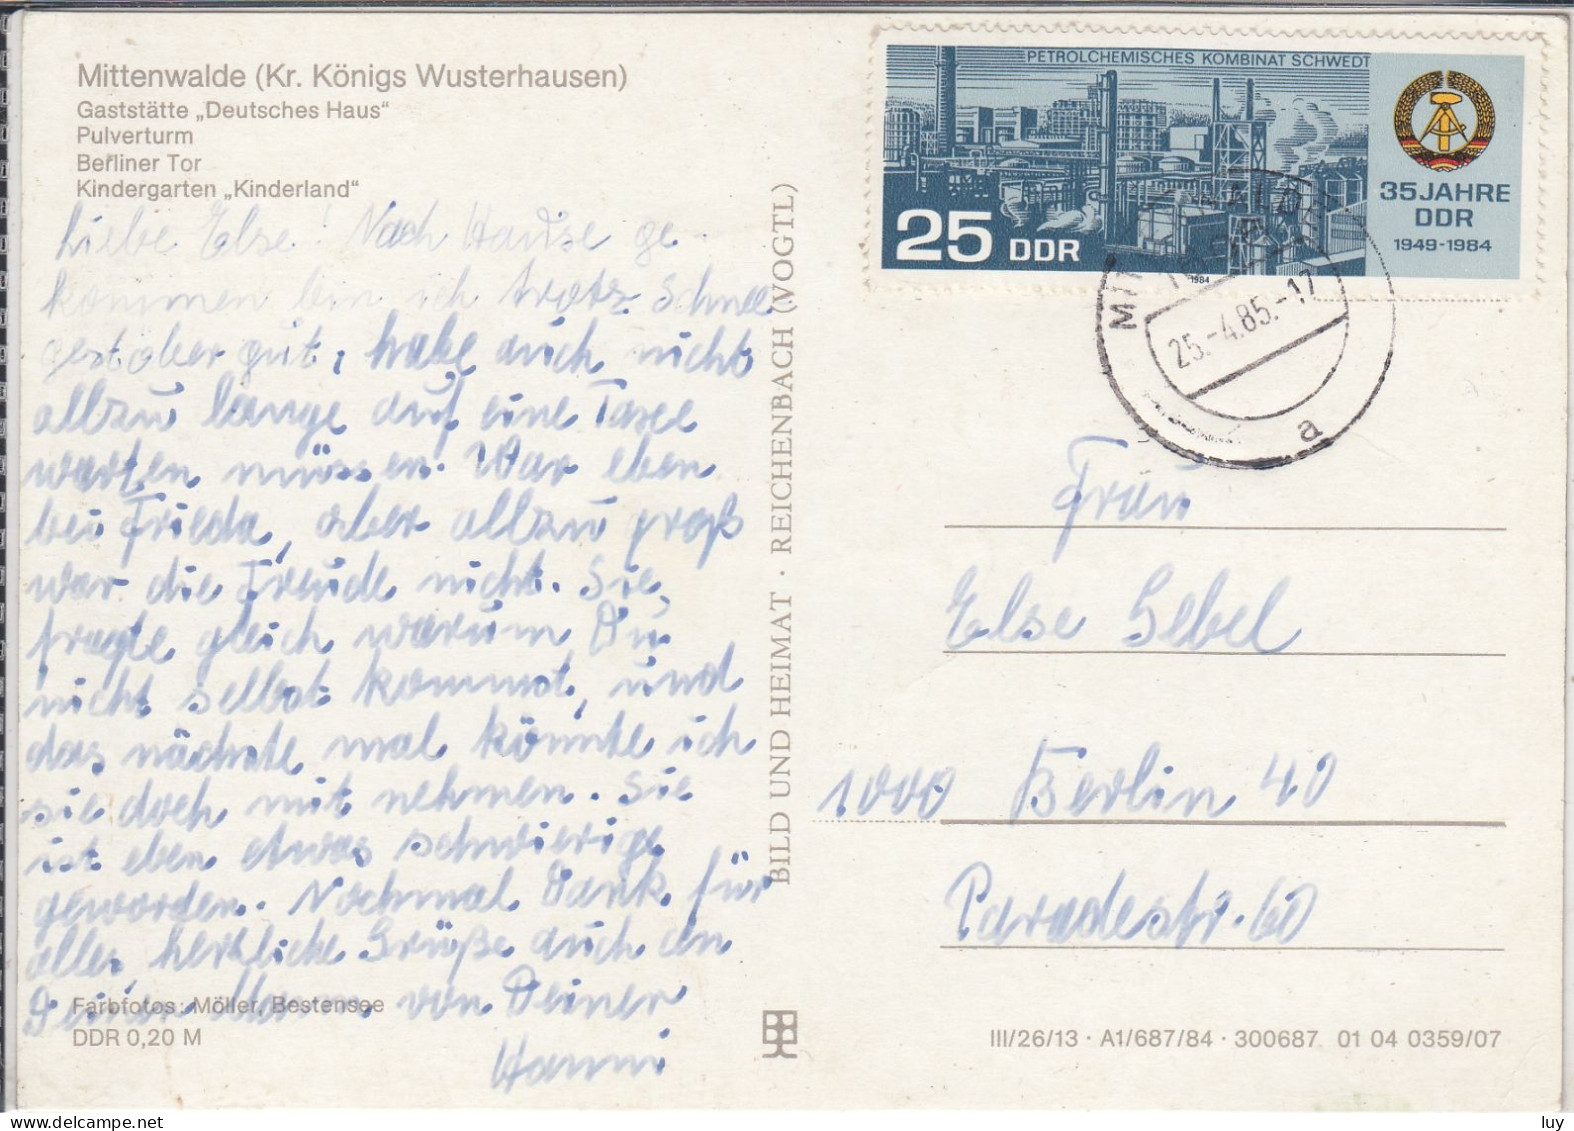 Mittenwalde (Kr. Königs Wusterhausen)
Gaststätte „Deutsches Haus“
Pulverturm
Berliner Tor
Kindergarten „Kinderland“
Liebe Else! Nach Hause ge-
kommen bin ich trotz Schnee
gestober gut, habe auch nicht
allzu lange auf eine Tasee
warten müssen. War eben
bei Frieda, aber allzu groß
war die Freude nicht. Sie,
fragte gleich warum Du
nicht selbst kommst, und
das nächste mal könnte ich
sie doch mit nehmen. Sie
ist eben etwas schwierige
geworden. Nochmal Dank für
alles, herzliche Grüße auch an
Deinen Mann von Deiner
Hanni
Farbfotos: Möller, Bestensee
DDR 0,20 M
BILD UND HEIMAT · REICHENBACH (VOGTL)
PETROLCHEMISCHES KOMBINAT SCHWEDT
35 JAHRE
DDR
1949-1984
25 DDR
1984
25.-4.85.-17
a
Frau
Else Gebel
1000 Berlin 40
Paradestr. 60
III/26/13 · A1/687/84 · 300687 01 04 0359/07
luy